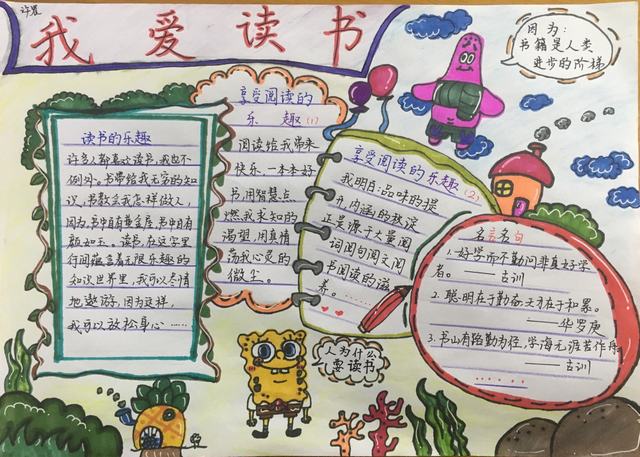 许宸
我爱读书
因为:
书籍是人类
进步的阶梯
读书的乐趣
许多人都喜欢读书,我也不
例外。书带给我无穷的知
识,书教会我怎样做人,
因为书中自有黄金屋,书中自有
颜如玉。读书,在这字里
行间蕴含着无限乐趣的
知识世界里,我可以尽情
地遨游,因为这样,
我可以放松身心……
享受阅读的
乐趣(1)
阅读给我带来
快乐,一本本好
书用智慧点
燃我求知的
渴望,用真情
荡我心灵的
微尘。
享受阅读的乐趣(2)
我明白:品味的提
升,内涵的
正是源于大量阅
词间句间文间
书阅读的滋
养。……
名言名句
1.好学而不勤问非真好学
者。——古训
2.聪明在于勤奋天才在于积累。
——华罗庚
3.书山有路勤为径,学海无涯苦作舟
——古训
……
人为什么
要读书